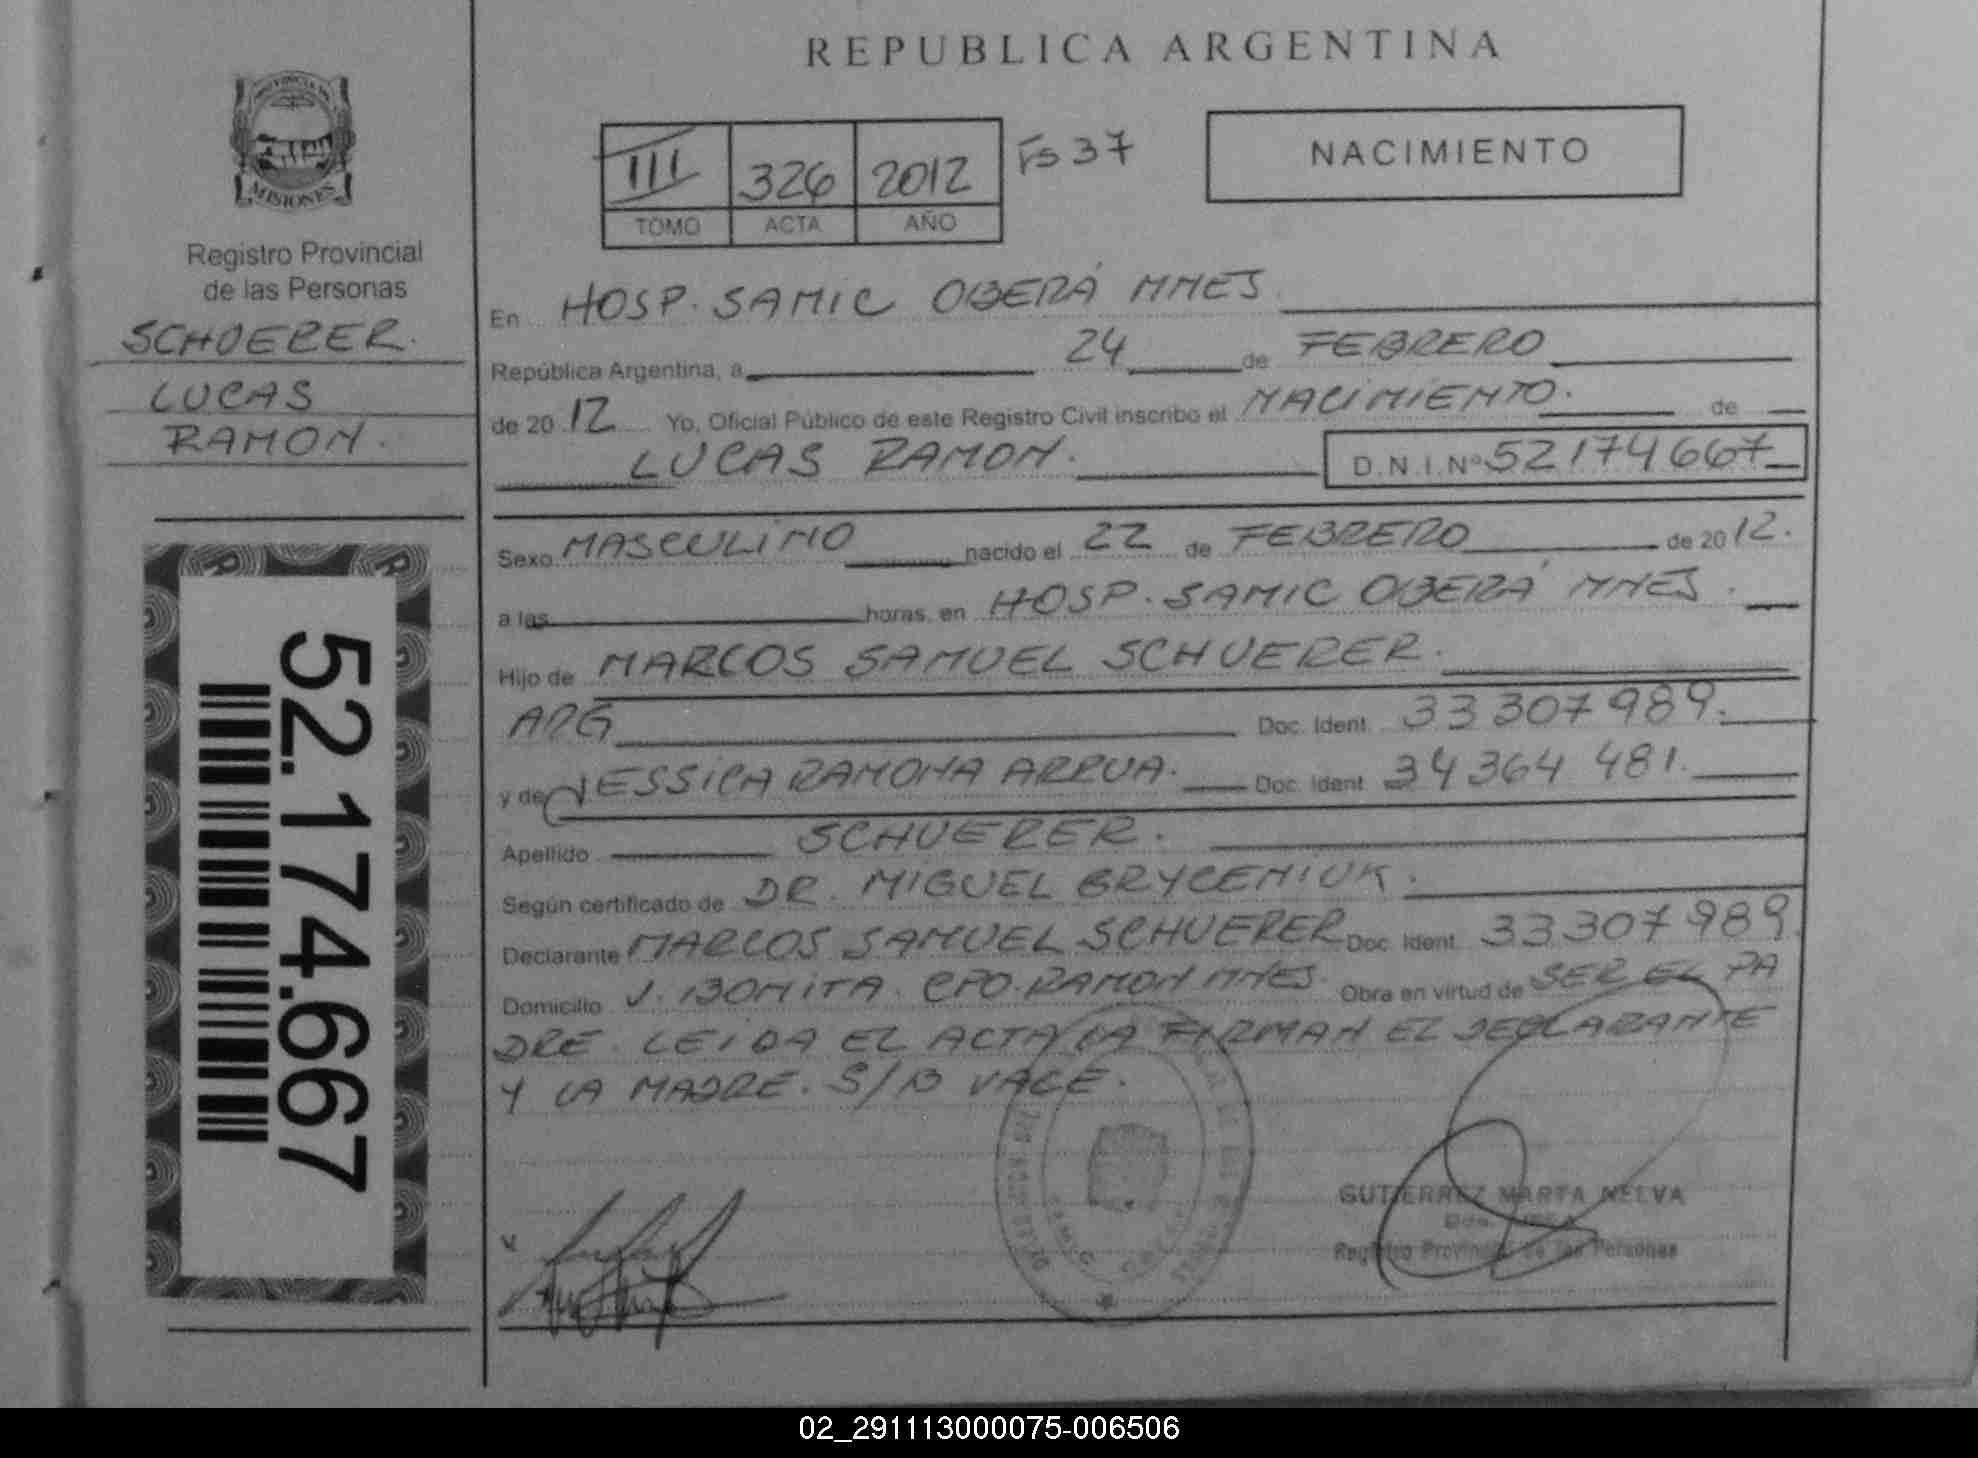 REPUBLICA ARGENTINA
PROVINCIA DE
MISIONES
Registro Provincial
de las Personas
SCHUERER.
LUCAS
RAMON.
52.174.667
III 326 2012 Fs 37
TOMO ACTA AÑO
NACIMIENTO
En HOSP. SAMIC OBERÁ MNES.
República Argentina, a 24 de FEBRERO
de 20 12 Yo, Oficial Público de este Registro Civil inscribo el NACIMIENTO. de
LUCAS RAMON. D.N.I.Nº 52174667
Sexo MASCULINO nacido el 22 de FEBRERO de 20 12.
a las horas, en HOSP. SAMIC OBERÁ MNES.
Hijo de MARCOS SAMUEL SCHUERER.
ARG Doc. Ident. 33307989.
y de JESSICA RAMONA ARRUA. Doc. Ident. 34364481.
Apellido SCHUERER.
Según certificado de DR. MIGUEL GRYCENIUK.
Declarante MARCOS SAMUEL SCHUERER Doc. Ident. 33307989.
Domicilio V. BONITA. CPO. RAMON MNES. Obra en virtud de SER EL PA
DRE. LEIDA EL ACTA LA FIRMAN EL DECLARANTE
Y LA MADRE. S/B VALE.
GUTIERREZ MARTA NELVA
Registro Provincial de las Personas
02_291113000075-006506